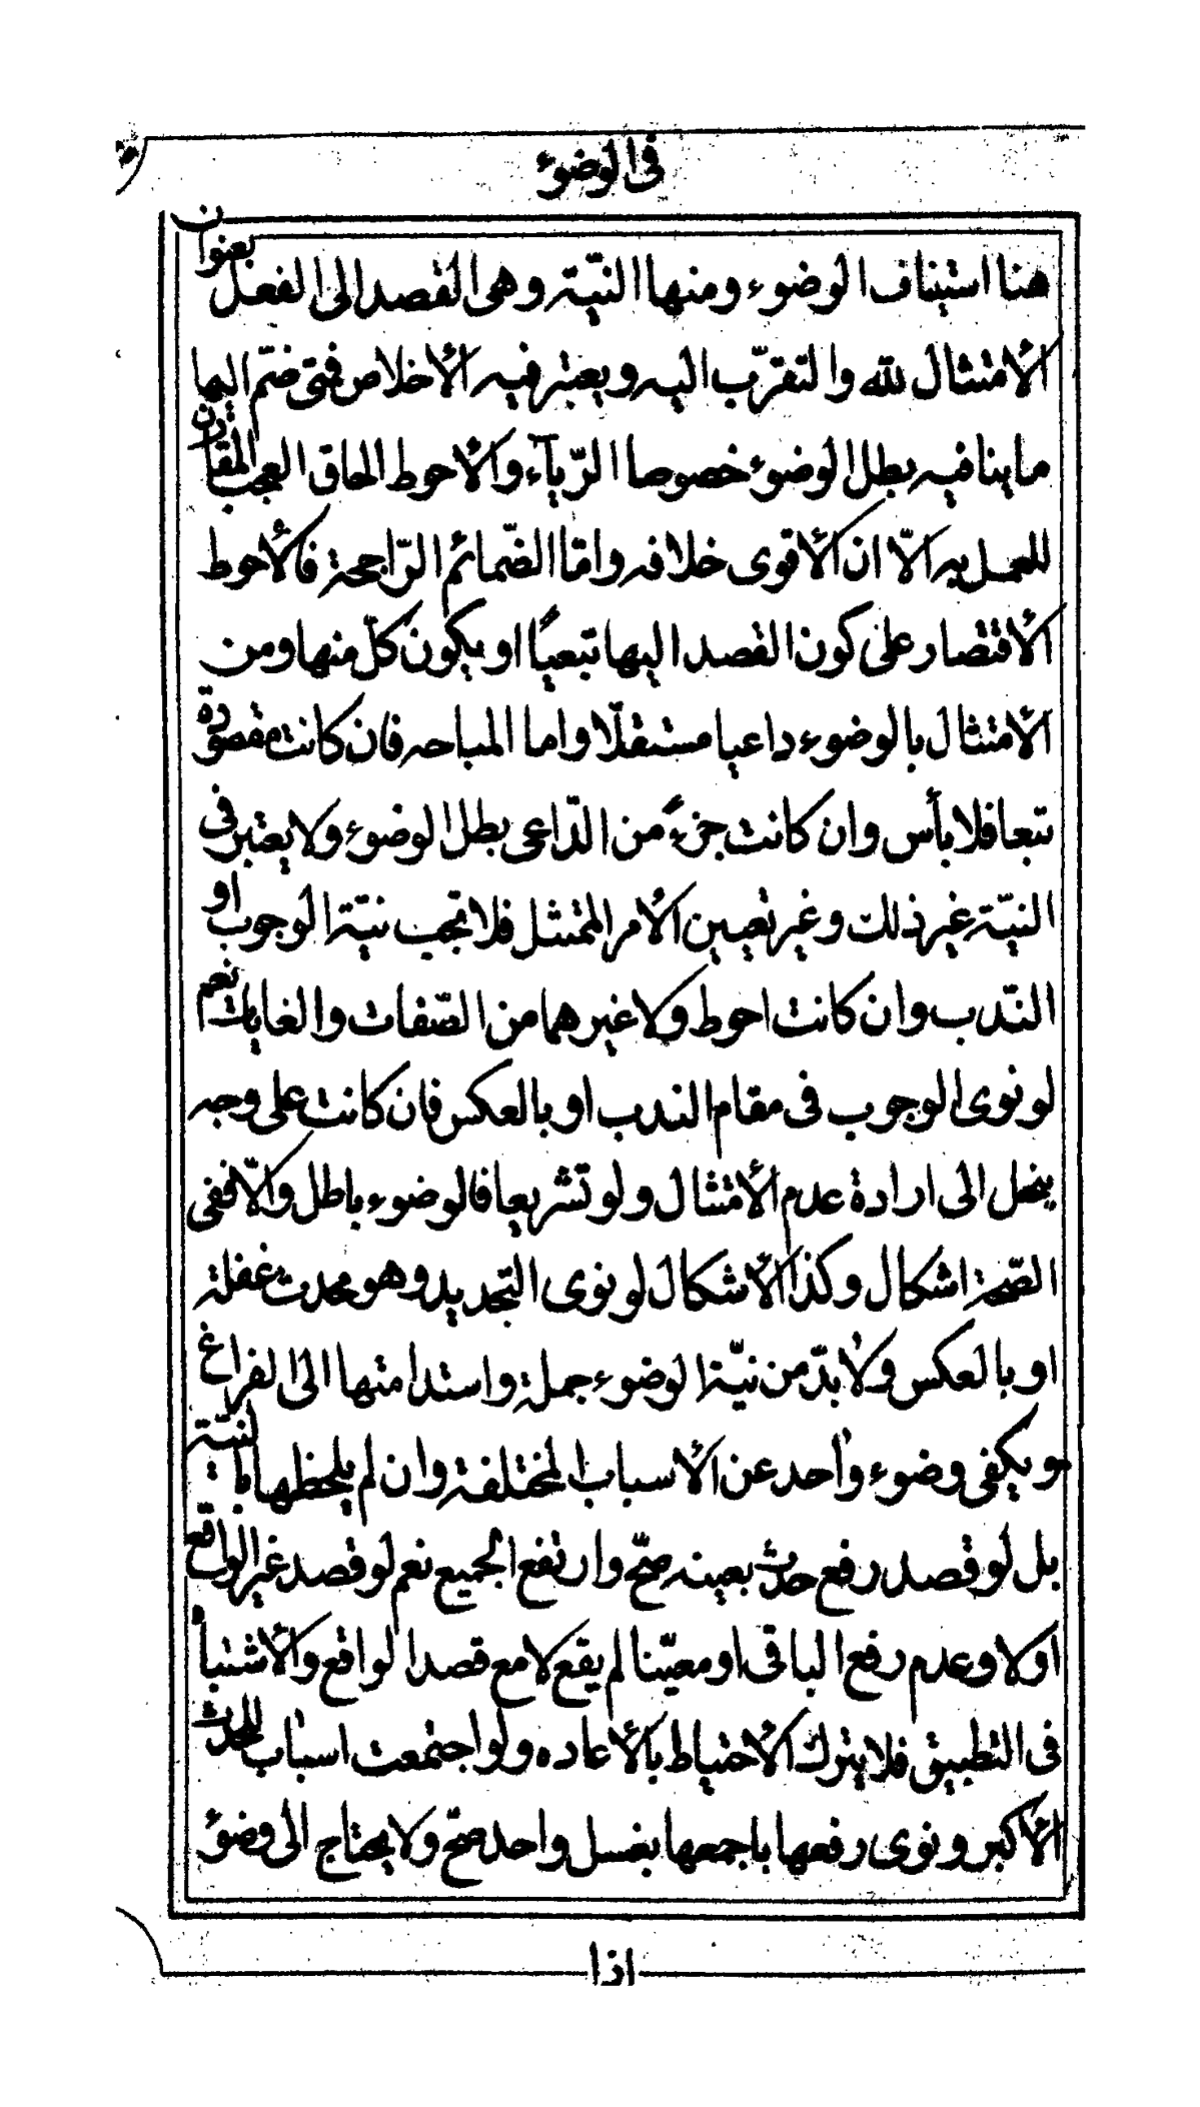 فى الوضوء
هنا استيناف الوضوء ومنها النيّة وهى القصد الى الفعل بعنوان
الأمتثال لله والتقرّب اليه ويعتبر فيه الأخلاص فمتى ضمّ اليها
ما ينافيه بطل الوضوء خصوصا الرّيآء والأحوط الحاق العجب المقارن
للعمل به الّا ان الأقوى خلافه وامّا الضّمائم الرّاجحة فالأحوط
الأقتصار على كون القصد اليها تبعيًا او يكون كلّ منها ومن
الأمتثال بالوضوء داعيا مستقلّا واما المباحه فان كانت مقصودة
تبعا فلا بأس وان كانت جزءً من الدّاعى بطل الوضوء ولا يعتبر فى
النيّة غير ذلك وغير تعيين الأمر الممتثل فلا تجب نيّة الوجوب او
النّدب وان كانت احوط ولا غيرهما من الصّفات والغايات نعم
لو نوى الوجوب فى مقام الندب او بالعكس فان كانت على وجه
يخل الى ارادة عدم الأمتثال ولو تشريعا فالوضوء باطل والّا ففى
الصّحة اشكال وكذا الأشكال لو نوى التجديد وهو محدث غفلة
او بالعكس ولا بدّ من نيّة الوضوء جملة واستدامتها الى الفراغ
ويكفى وضوء واحد عن الأسباب المختلفة وان لم يلحظها بالنيّة
بل لو قصد رفع حدث بعينه صحّ وارتفع الجميع نعم لو قصد غير الواقع
اولا وعدم رفع الباقى او معيّنا لم يقع لا مع قصد الواقع والأشتباه
فى التطبيق فلا يترك الأحتياط بالأعاده ولو اجتمعت اسباب للحدث
الأكبر ونوى رفعها باجمعها بغسل واحد صحّ ولا يحتاج الى وضوء
اذا